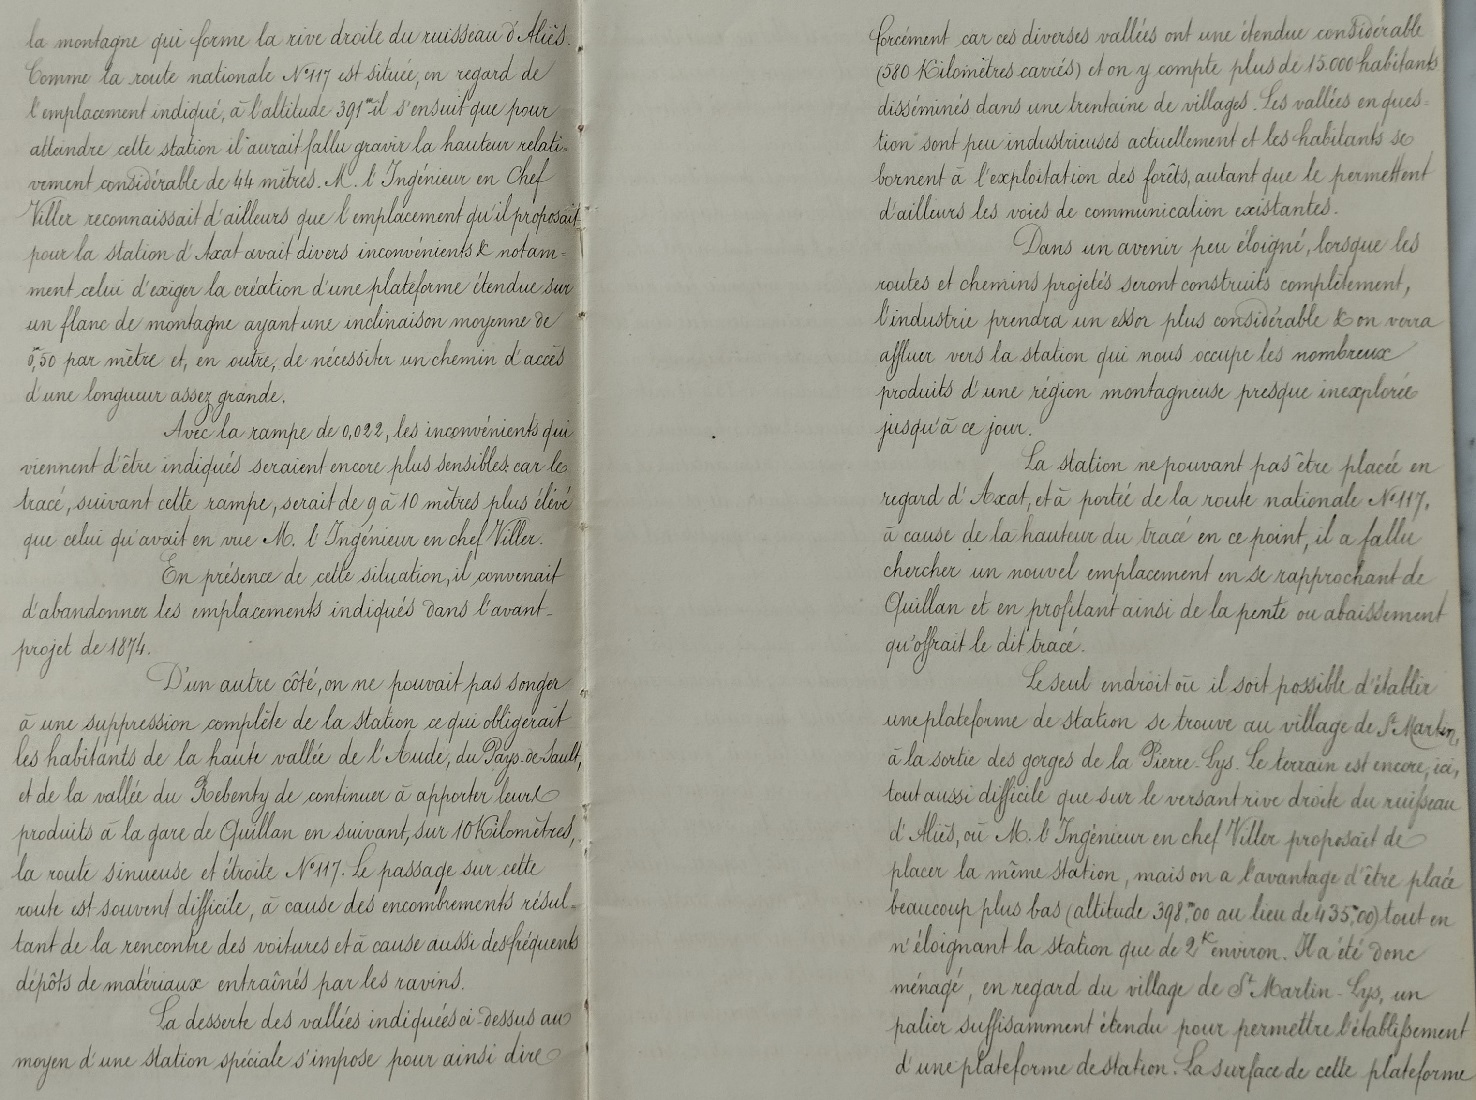 la montagne qui forme la rive droite du ruisseau d'Aliès.
Comme la route nationale N°117 est située, en regard de
l'emplacement indiqué, à l'altitude 391m il s'ensuit que pour
atteindre cette station il aurait fallu gravir la hauteur relati-
vement considérable de 44 mètres. M. l'Ingénieur en Chef
Viller reconnaissait d'ailleurs que l'emplacement qu'il proposait
pour la station d'Axat avait divers inconvénients & notam-
ment celui d'exiger la création d'une plateforme étendue sur
un flanc de montagne ayant une inclinaison moyenne de
0m,50 par mètre et, en outre, de nécessiter un chemin d'accès
d'une longueur assez grande.
Avec la rampe de 0,022, les inconvénients qui
viennent d'être indiqués seraient encore plus sensibles car le
tracé, suivant cette rampe, serait de 9 à 10 mètres plus élevé
que celui qu'avait en vue M. l'Ingénieur en chef Viller.
En présence de cette situation, il convenait
d'abandonner les emplacements indiqués dans l'avant-
projet de 1874.
D'un autre côté, on ne pouvait pas songer
à une suppression complète de la station ce qui obligerait
les habitants de la haute vallée de l'Aude, du Pays-de-Sault,
et de la vallée du Rebenty de continuer à apporter leurs
produits à la gare de Quillan en suivant, sur 10 Kilomètres,
la route sinueuse et étroite N°117. Le passage sur cette
route est souvent difficile, à cause des encombrements résul-
tant de la rencontre des voitures et à cause aussi des fréquents
dépôts de matériaux entraînés par les ravins.
La desserte des vallées indiquées ci-dessus au
moyen d'une station spéciale s'impose pour ainsi dire
forcément car ces diverses vallées ont une étendue considérable
(580 Kilomètres carrés) et on y compte plus de 15.000 habitants
disséminés dans une trentaine de villages. Les vallées en ques-
tion sont peu industrieuses actuellement et les habitants se
bornent à l'exploitation des forêts, autant que le permettent
d'ailleurs les voies de communication existantes.
Dans un avenir peu éloigné, lorsque les
routes et chemins projetés seront construits complètement,
l'industrie prendra un essor plus considérable & on verra
affluer vers la station qui nous occupe les nombreux
produits d'une région montagneuse presque inexplorée
jusqu'à ce jour.
La station ne pouvant pas être placée en
regard d'Axat, et à portée de la route nationale N°117,
à cause de la hauteur du tracé en ce point, il a fallu
chercher un nouvel emplacement en se rapprochant de
Quillan et en profitant ainsi de la pente ou abaissement
qu'offrait le dit tracé.
Le seul endroit où il soit possible d'établir
une plateforme de station se trouve au village de St Martin,
à la sortie des gorges de la Pierre-Lys. Le terrain est encore, ici,
tout aussi difficile que sur le versant rive droite du ruisseau
d'Aliès, où M. l'Ingénieur en chef Viller proposait de
placer la même station, mais on a l'avantage d'être placé
beaucoup plus bas (altitude 398m,00 au lieu de 435m,00) tout en
n'éloignant la station que de 2K environ. Il a été donc
ménagé, en regard du village de St Martin-Lys, un
palier suffisamment étendu pour permettre l'établissement
d'une plateforme de station. La surface de cette plateforme